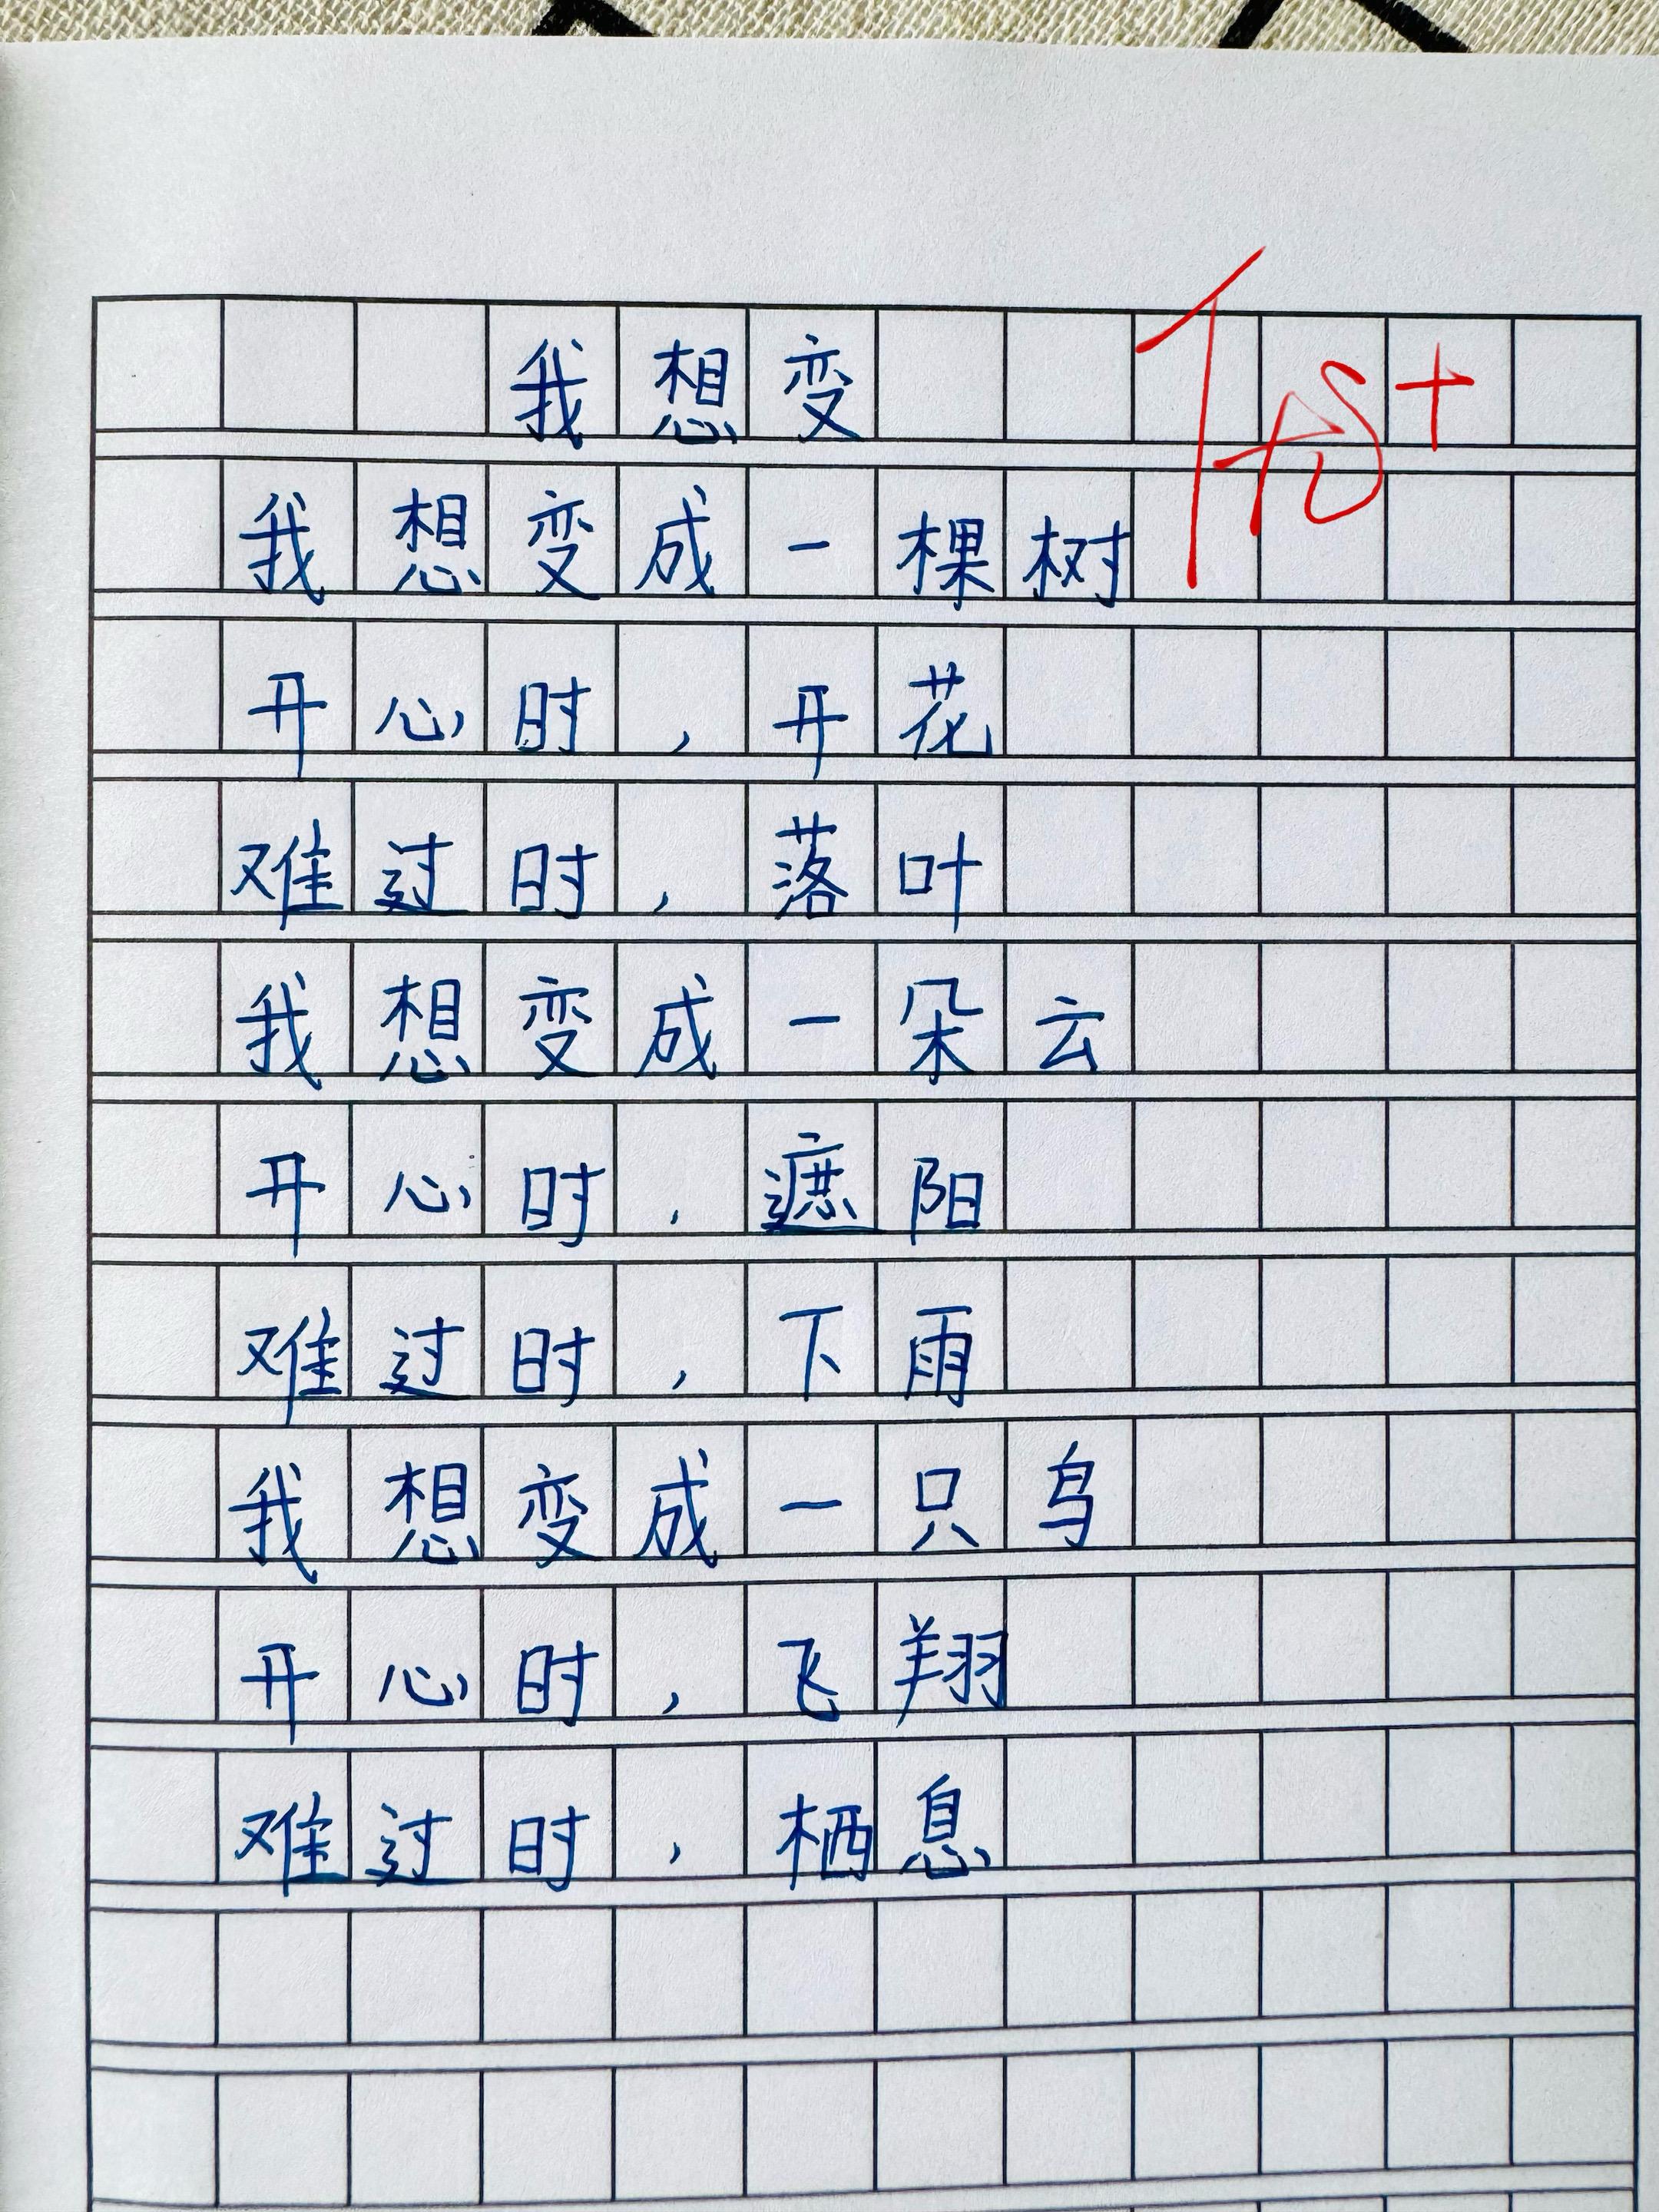 我想变
我想变成一棵树
开心时，开花
难过时，落叶
我想变成一朵云
开心时，遮阳
难过时，下雨
我想变成一只鸟
开心时，飞翔
难过时，栖息